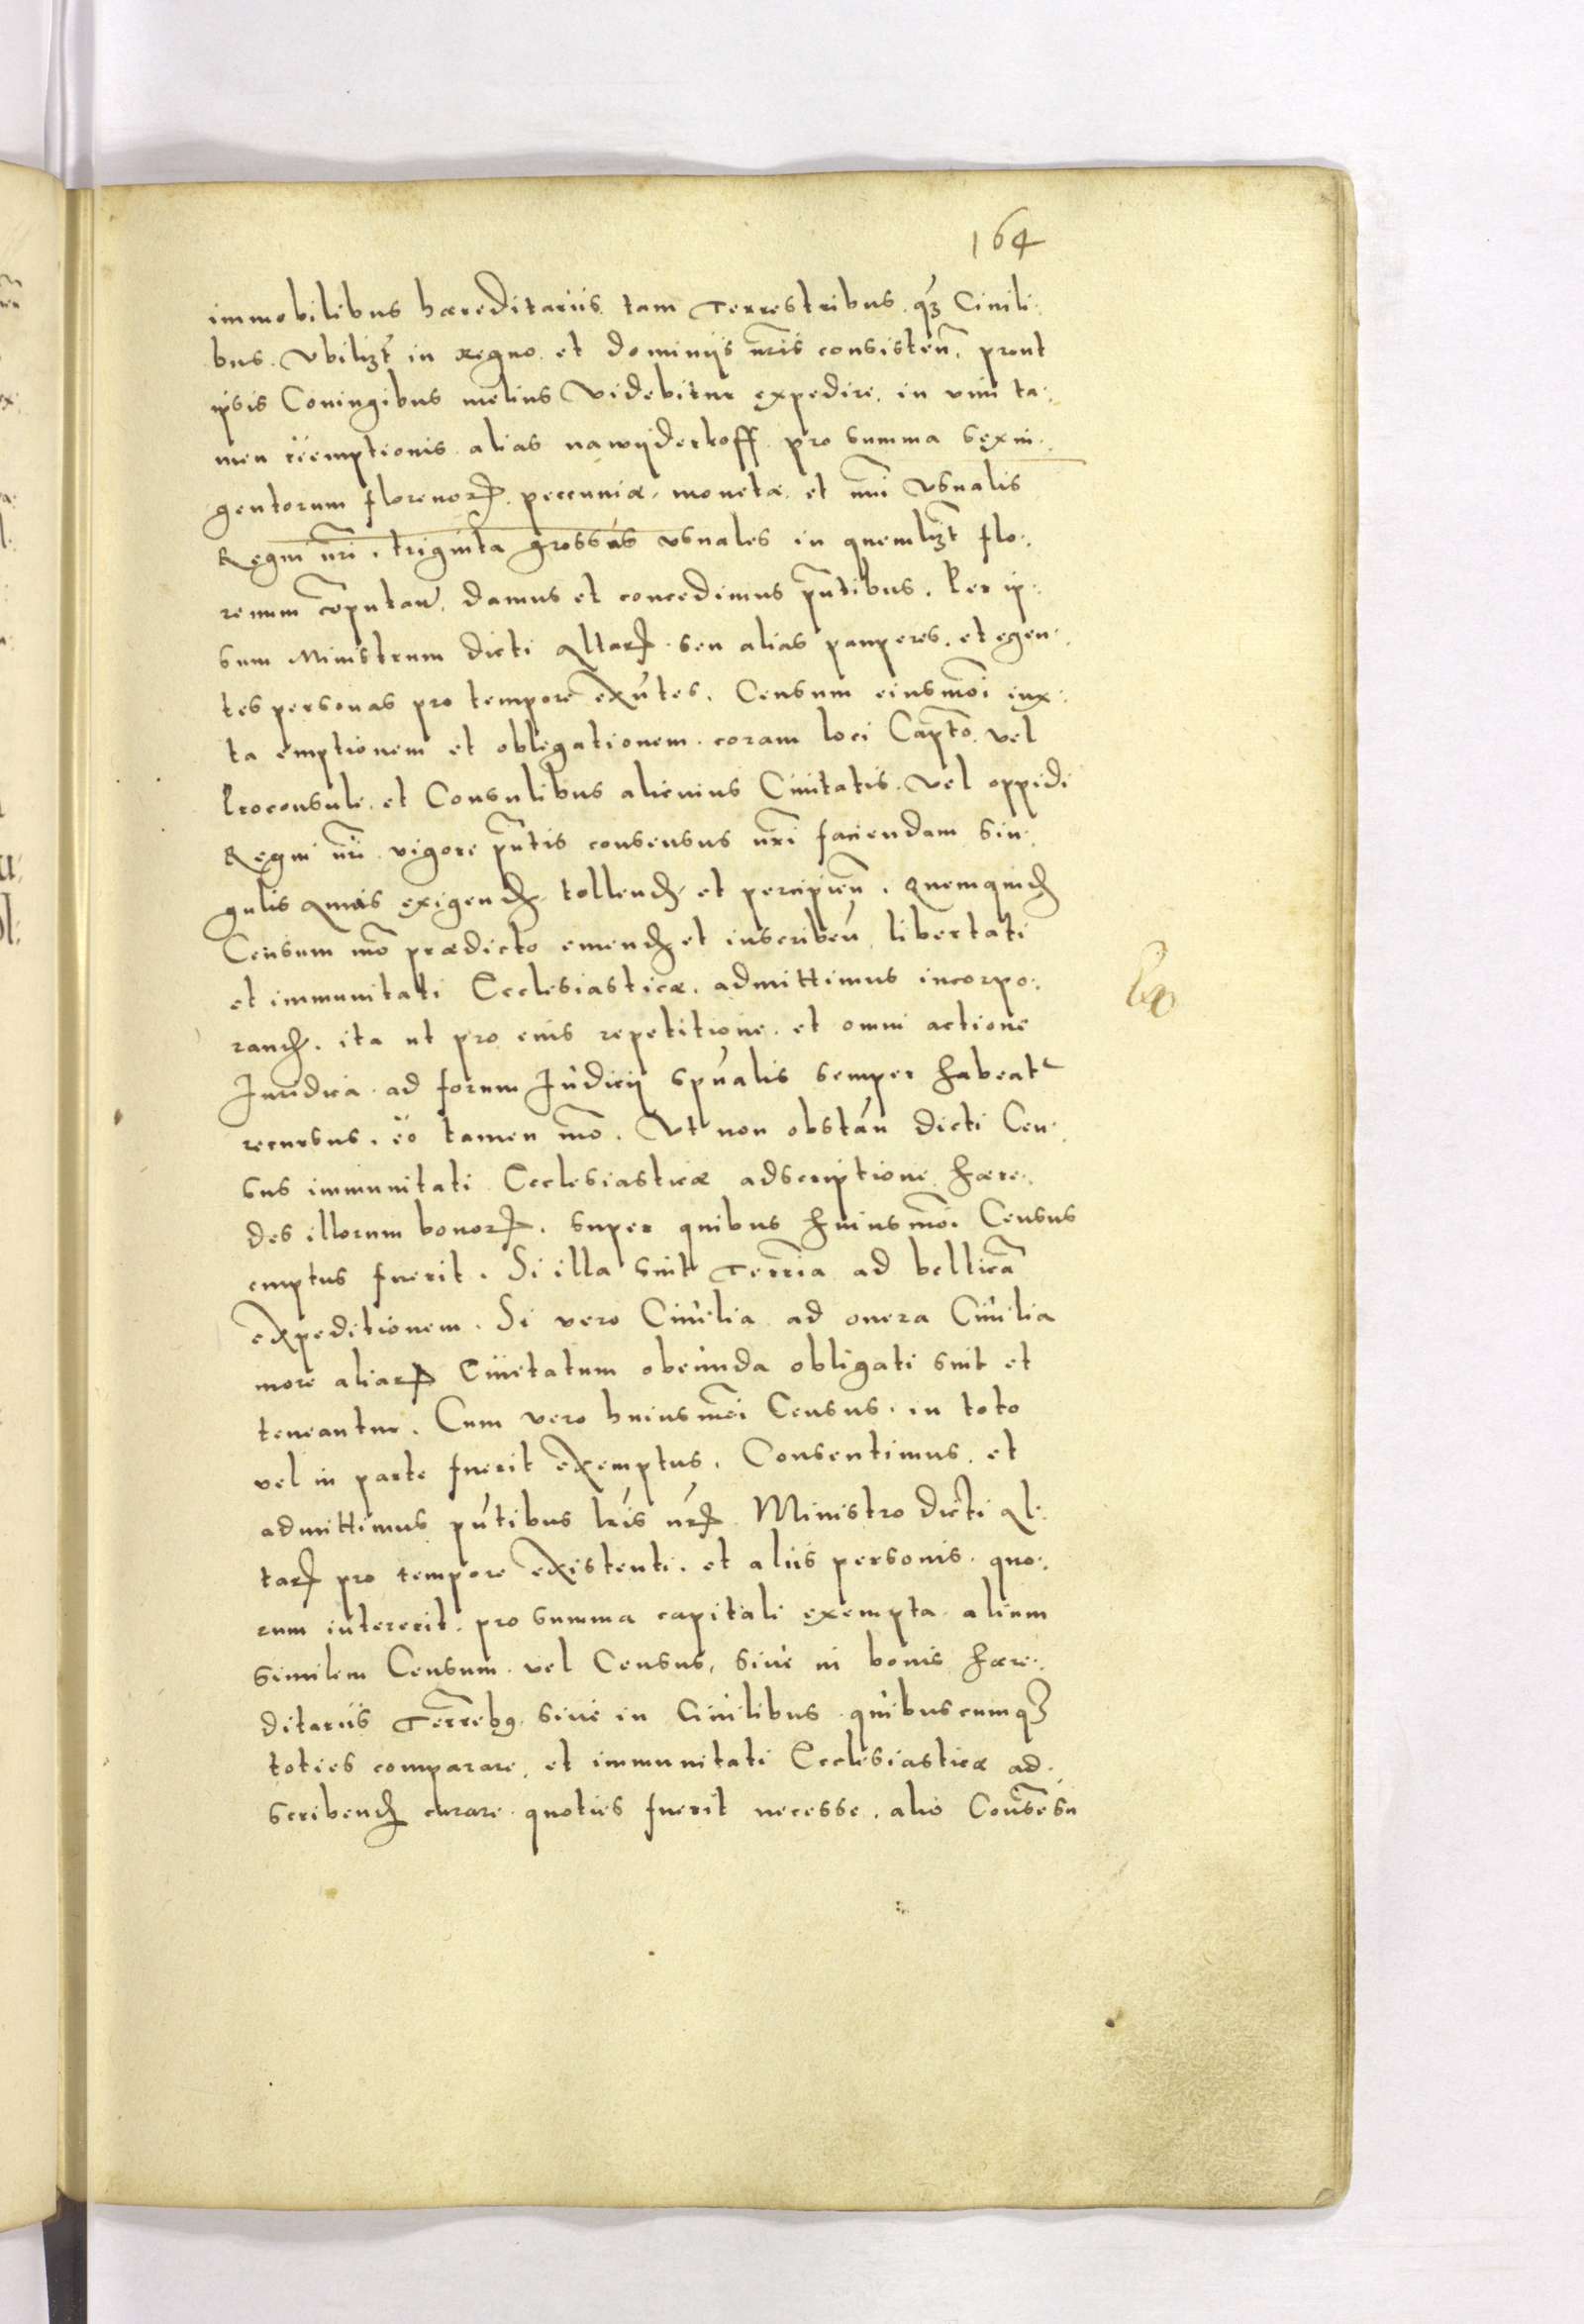 164
immobilibus hæreditariis tam Terrestribus qȝ Ciuili:
bus. Vbilizt in regno et dominijs nr̃is consisten̄. prout
ipsis Coniugibus melius Videbitur expedire. in vim ta:
men reemptionis alias nawijderkoff pro summa sexin:
gentorum florenorꝝ. peccuniæ monetæ et nūi Vsualis
Regni nr̃i. triginta grossas vsuales in quemlizt flo:
renum cōputan̄. damus et concedimus pn̄tibus. Per ip:
sum Ministrum dicti Altarꝭ seu alias pauperes. et egen:
tes personas pro tempore exn̄tes. Censum eiusmōi iux:
ta emptionem et obligationem coram loci Capt̄o vel
Proconsule et Consulibus alicuius Ciuitatis. Vel oppidi
Regni nr̃i vigore pn̄tis consensus nr̃i faciendam sin:
gulis Annis exigendꝭ tollendꝭ et percipien̄. Quemquidꝭ
Censum mō prædicto emendꝭ et inscriben̄ libertati
et immunitati Ecclesiasticæ. admittimus incorpo:
randꝭ. ita ut pro eius repetitione et omni actione
Iuridica ad forum Iudicij sp̄ualis semper habeatʳ
recursus. eo tamen mō. Vt non obstan̄ dicti Cen:
sus immunitati Ecclesiasticæ adscriptione hære:
des illorum bonorꝝ. super quibus huiusmōi Census
emptus fuerit. Si illa sint Terr̃ia ad bellicā
expeditionem. Si vero Ciuilia ad onera Ciuilia
more aliarꝝ Ciuitatum obeunda obligati sint et
teneantur. Cum vero huiusmōi Census. in toto
vel in parte fuerit exemptus. Consentimus. et
admittimus pn̄tibus lr̃is nr̃ꝭ Ministro dicti Al:
tarꝭ pro tempore existenti. et aliis personis. quo:
rum intererit. pro summa capitali exempta alium
similem Censum vel Census, siue in bonis hære:
ditariis Terr̃ebꝯ siue in Ciuilibus quibuscumqȝ
toties comparare. et immunitati Ecclesiasticæ ad:
scribendꝭ curare quoties fuerit necesse. alio Consēsu